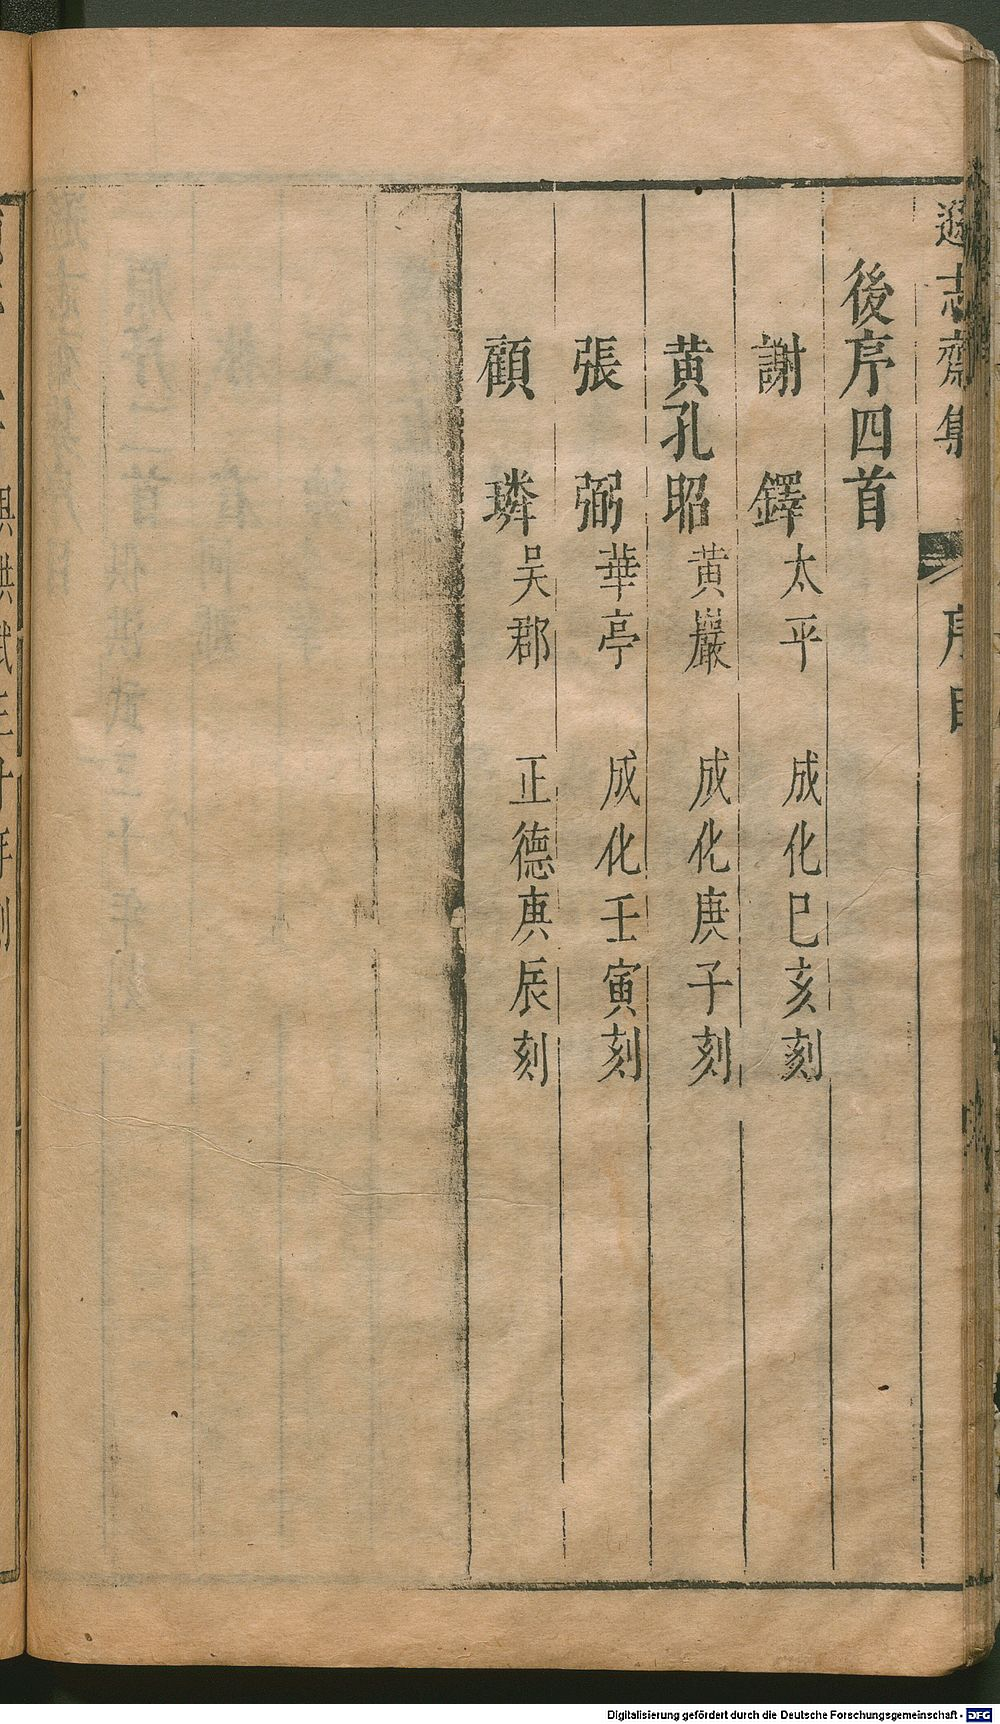 遜志齋集 序目
後序四首
謝　鐸 太平　成化巳亥刻
黄孔昭 黄巖　成化庚子刻
張　弼 華亭　成化壬寅刻
顧　璘 吴郡　正德庚辰刻
Digitalisierung gefördert durch die Deutsche Forschungsgemeinschaft - DFG